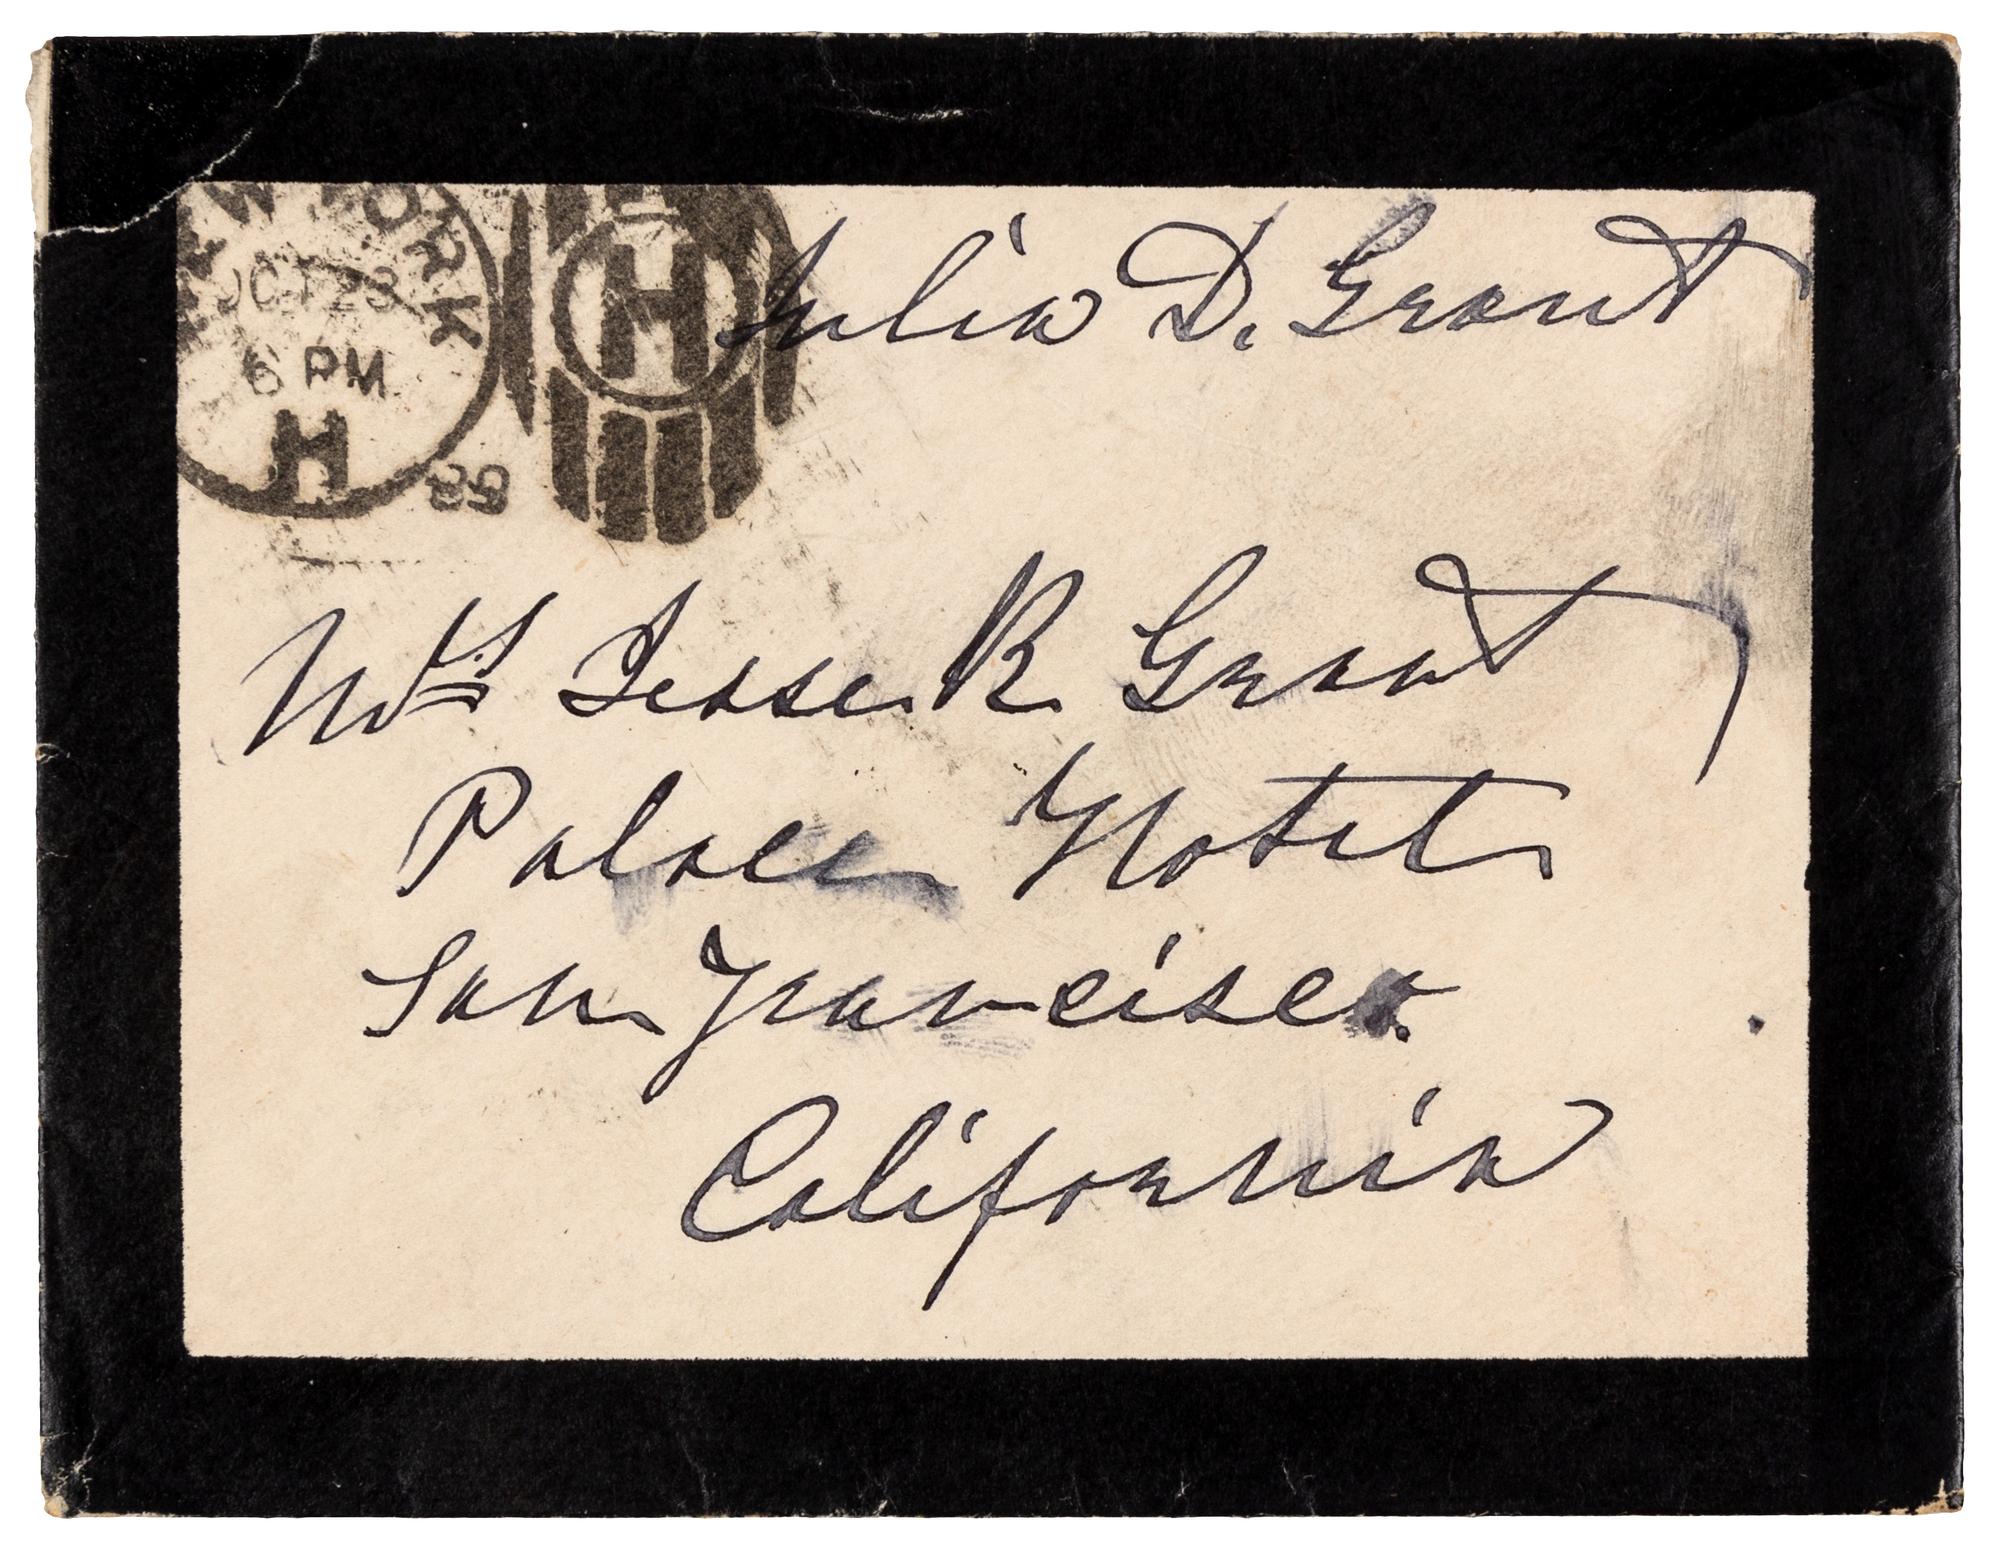 NEW YORK
OCT 23
6 PM
H
89
H
Julia D. Grant
Mrs Jesse R. Grant
Palace Hotel
San Francisco.
California